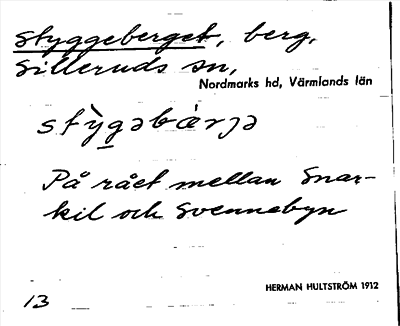 Styggeberget, berg,
Silleruds sn,
Nordmarks hd, Värmlands län
stỳgəbærjə
På rået mellan Snar-
kil och Svennebyn
HERMAN HULTSTRÖM 1912
13